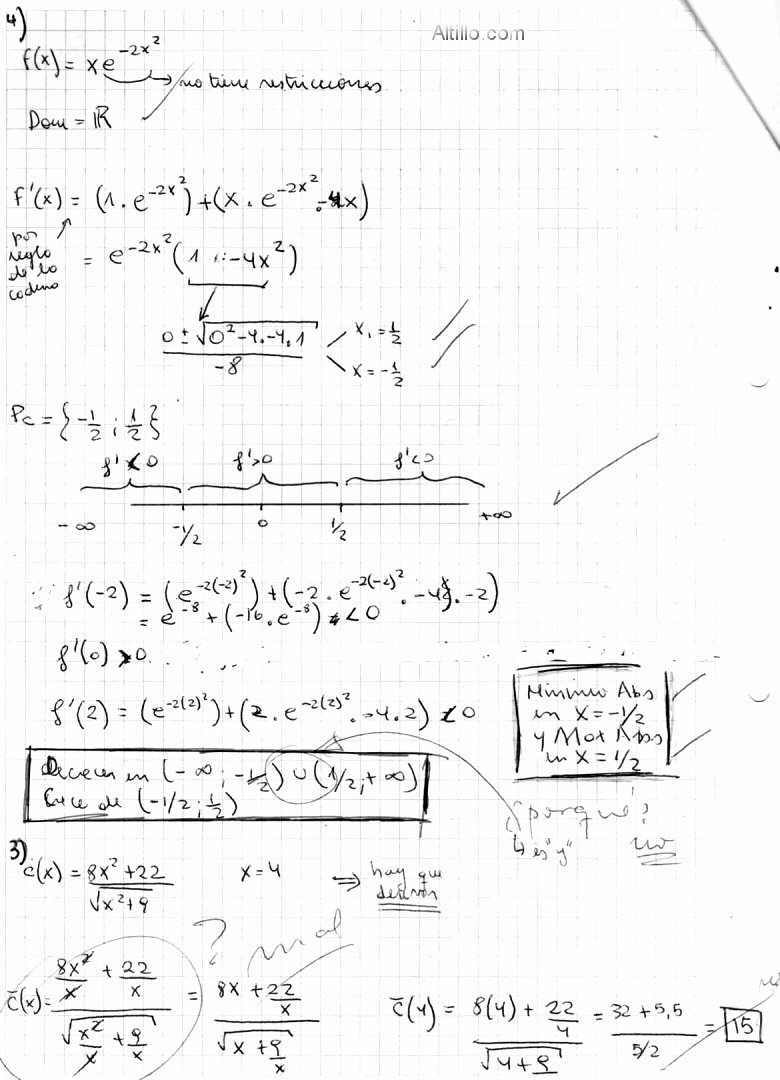 Altillo.com
4)
f(x) = x e^{-2x^2} → no tiene restricciones
Dom = ℝ
f'(x) = (1 . e^{-2x^2}) + (x . e^{-2x^2} . -4x)
por
regla
de la
cadena
= e^{-2x^2} (1 -4x^2)
0 ± √(0^2 -4.-4.1) / -8
x_1 = 1/2
x = -1/2
Pc = {-1/2 ; 1/2}
f' < 0 f' > 0 f' < 0
-∞ -1/2 0 1/2 +∞
f'(-2) = (e^{-2(-2)^2}) + (-2 . e^{-2(-2)^2} . -4 . -2)
= e^{-8} + (-16 . e^{-8}) < 0
f'(0) > 0
f'(2) = (e^{-2(2)^2}) + (2 . e^{-2(2)^2} . -4 . 2) < 0
Minimo Abs
en x = -1/2
y Max Abs
en x = 1/2
Decrece en (-∞ ; -1/2) ∪ (1/2 ; +∞)
Crece de (-1/2 ; 1/2)
¿porqué?
↳ es "y"
no
3)
c(x) = (8x^2 + 22) / √(x^2 + 9) x = 4 ⇒ hay que
derivar
? mal
c̄(x) = (8x^2/x + 22/x) / √(x^2/x + 9/x) = (8x + 22/x) / √(x + 9/x)
c̄(4) = (8(4) + 22/4) / √(4 + 9) = (32 + 5,5) / (5/2) = 15